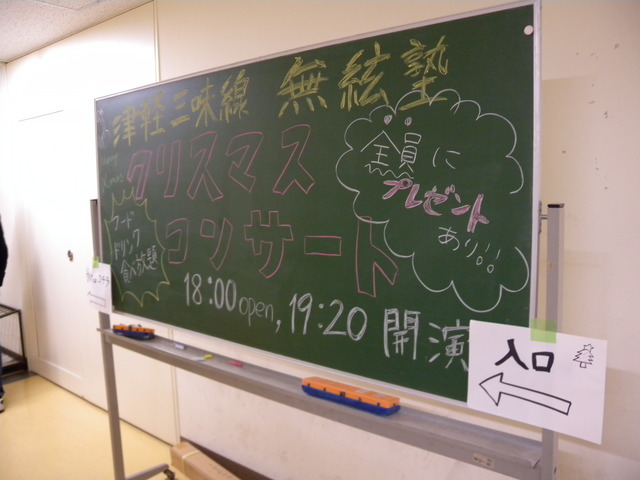 津軽三味線 無絃塾
Merry
Xmas!
クリスマス
コンサート
全員に
プレゼント
あり!!
フード
ドリンク
食べ放題
18:00 open, 19:20 開演
入口